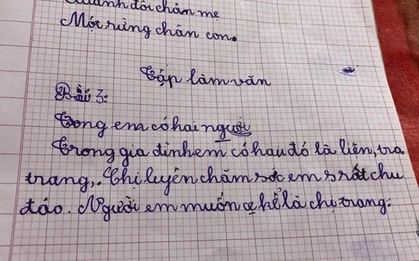 đôi chăm mẹ
Một rừng chân con.
Tập làm văn
Bài 3:
Trong em có hai người
Trong gia đình em có hau đó là liên, tra
trang,. Chị luyện chăm sóc em rất chu
đáo. Người em muốn kể là chị trang.